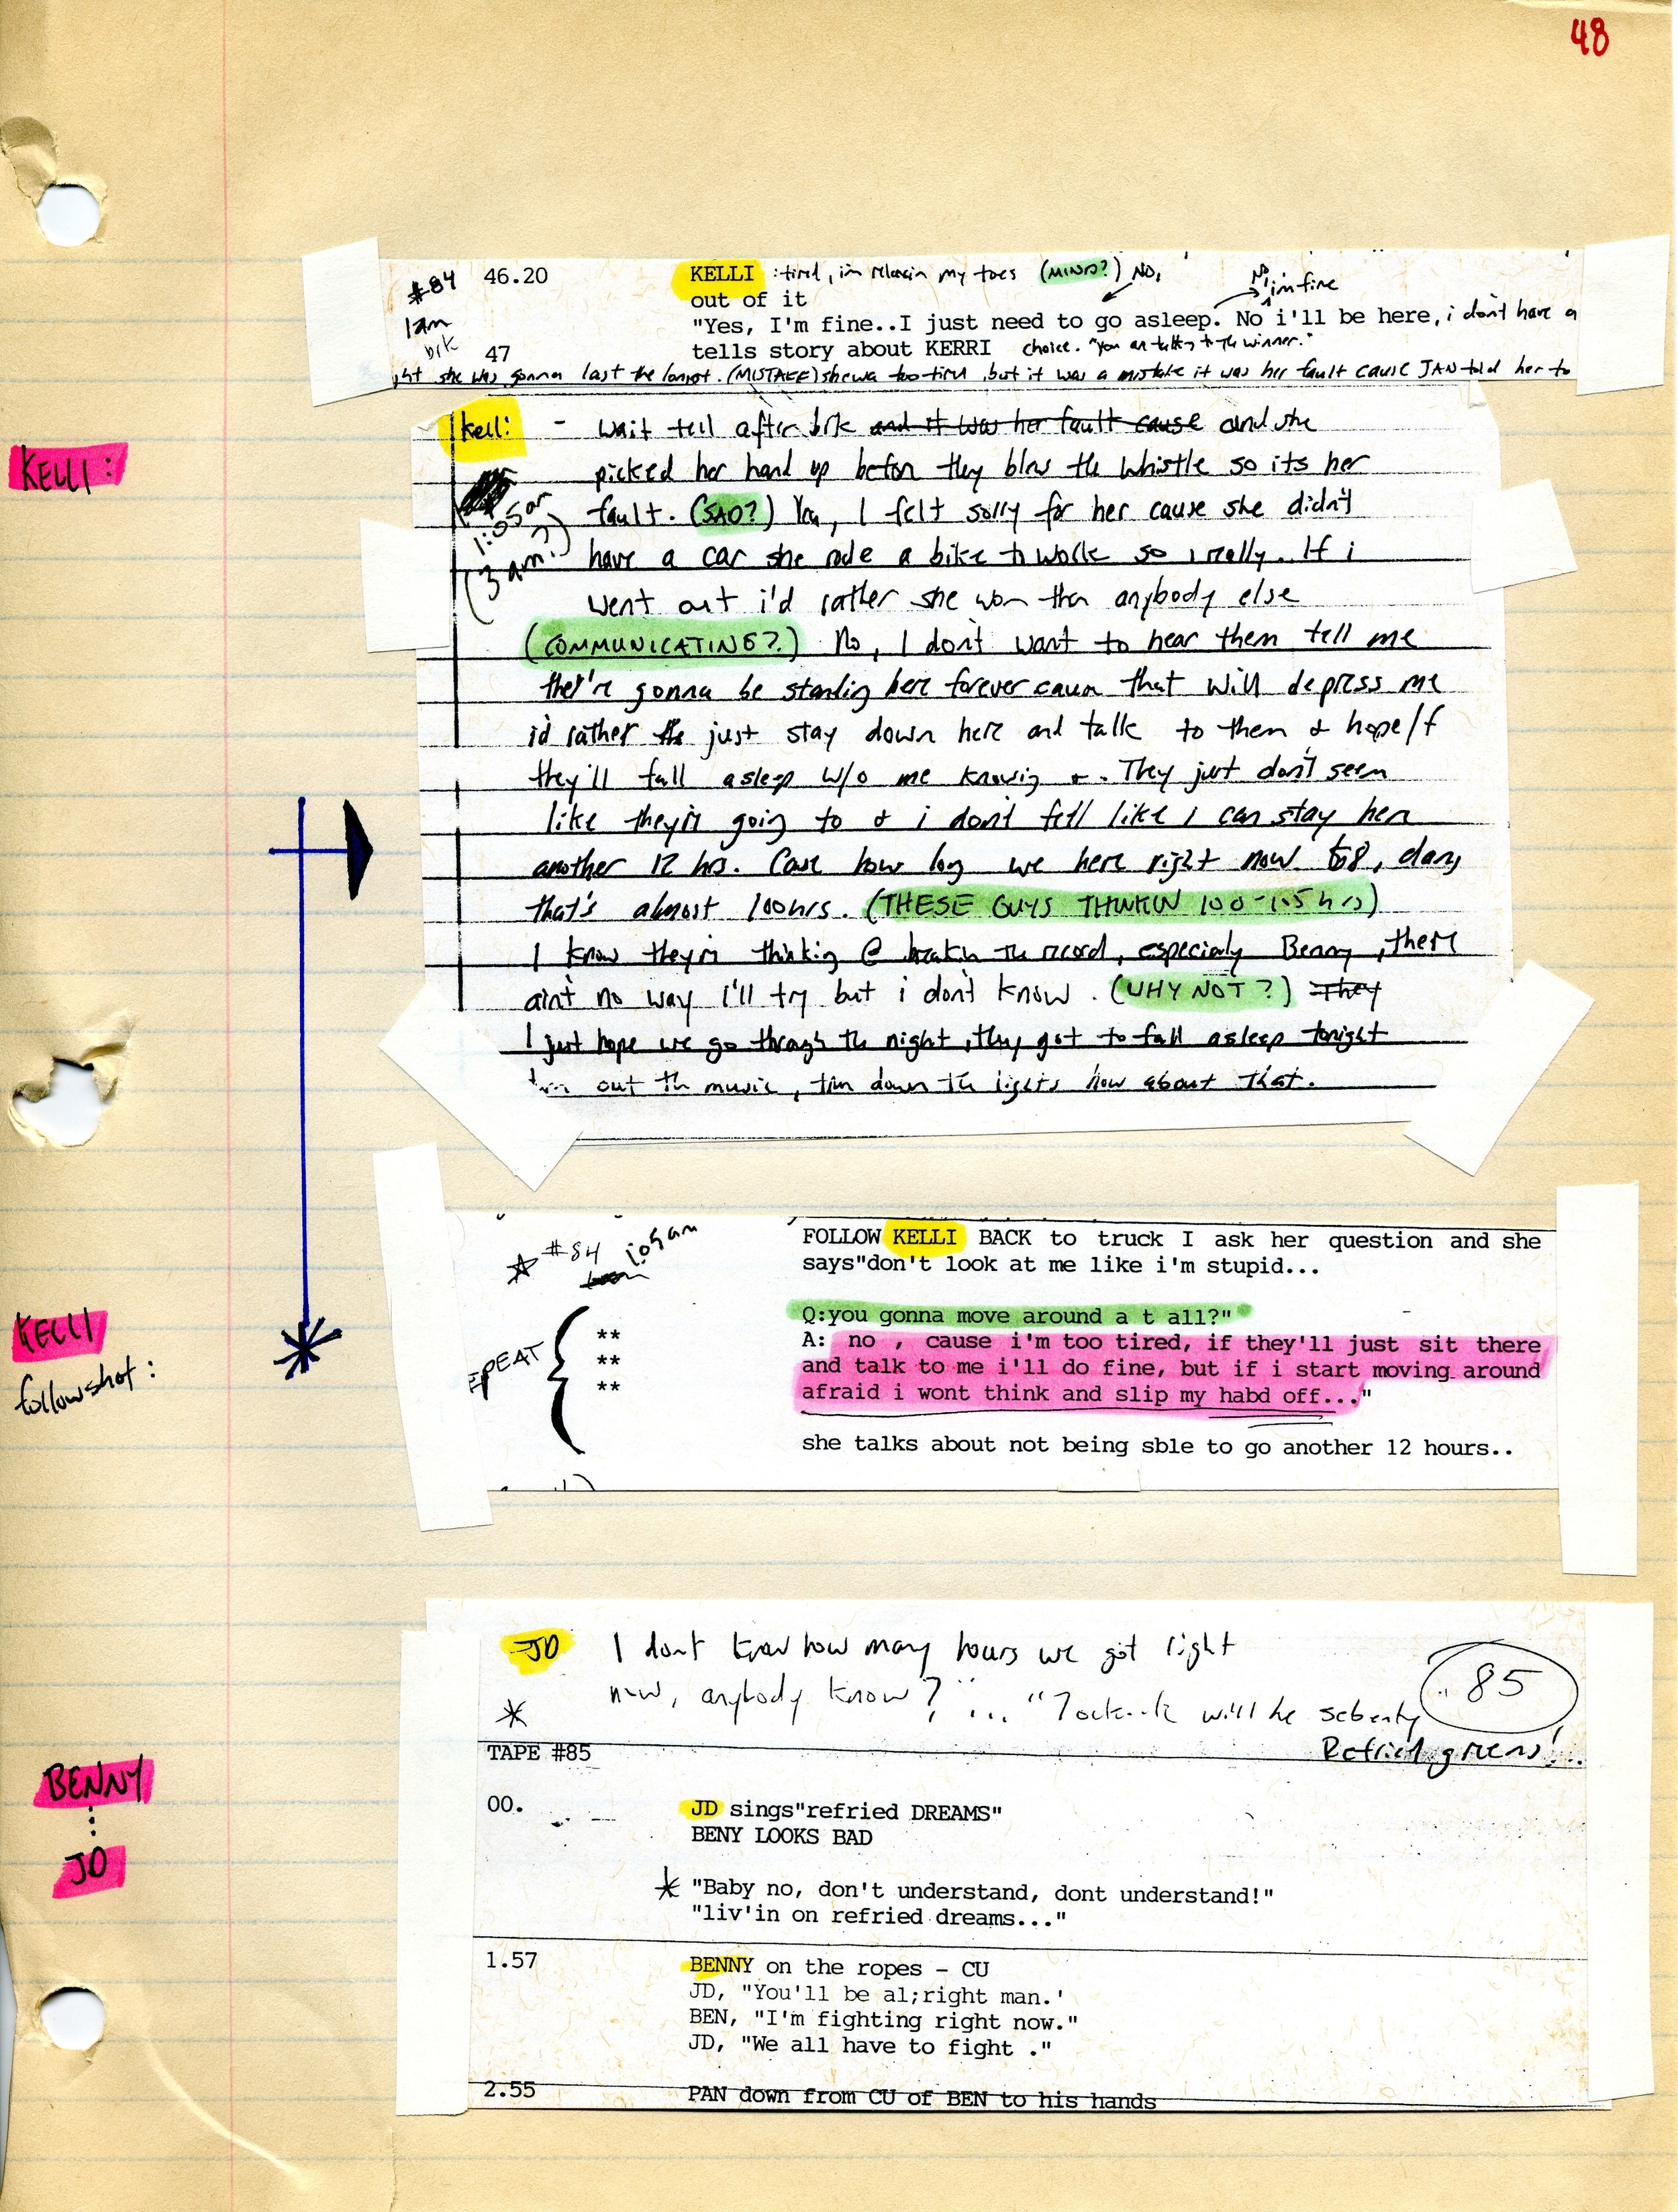 48
#84
1am
brk
46.20
KELLI :tired, im relaxin my toes (MIND?) NO,
out of it
No, im fine
"Yes, I'm fine..I just need to go asleep. No i'll be here, i don't have a
47
tells story about KERRI choice. "You are talking to the winner."
she was gonna last the longest. (MISTAKE) she wa too tired, but it was a mistake it was her fault cause JAN told her to
KELLI:
Kelli: - wait tell after brk and it was her fault cause and she
picked her hand up before they blew the whistle so its her
1:05am
(3am?)
fault. (SAD?) Yea, I felt sorry for her cause she didn't
have a car she rode a bike to work so i really. If i
went out i'd rather she won than anybody else
(COMMUNICATING?) No, I don't want to hear them tell me
they're gonna be standing here forever cause that will depress me
i'd rather the just stay down here and talk to them & hope/f
they'll fall asleep w/o me knowing +. They just don't seem
like they're going to & i don't fell like i can stay here
another 12 hrs. Cause how long we here right now 68, dang
that's almost 100hrs. (THESE GUYS THINKIN 100-105 hrs)
I know they're thinking @ breakin the record, especialy Benny, there
ain't no way I'll try but i don't know. (WHY NOT?) They
I just hope we go through the night, they got to fall asleep tonight
out the music, turn down the lights how about that.
#84 1:05am
FOLLOW KELLI BACK to truck I ask her question and she
says"don't look at me like i'm stupid...
KELLI
followshot:
EPEAT
**
**
**
Q:you gonna move around a t all?"
A: no , cause i'm too tired, if they'll just sit there
and talk to me i'll do fine, but if i start moving around
afraid i wont think and slip my habd off..."
she talks about not being sble to go another 12 hours..
JD I dont know how many hours we got right
now, anybody know?"... "7 oclock will be seventy
85
Refried dreams!..
TAPE #85
BENNY
JD
00.
JD sings"refried DREAMS"
BENY LOOKS BAD
"Baby no, don't understand, dont understand!"
"liv'in on refried dreams..."
1.57
BENNY on the ropes - CU
JD, "You'll be al;right man.'
BEN, "I'm fighting right now."
JD, "We all have to fight ."
2.55
PAN down from CU of BEN to his hands